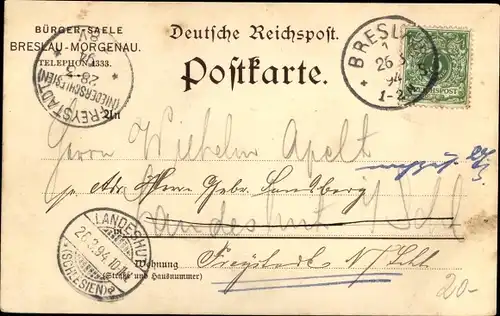 BÜRGER-SAELE
BRESLAU-MORGENAU.
TELEPHON 1333.
Deutsche Reichspost.
Postkarte.
BRESLAU
26 3
94
1-2 N.
FREYSTADT
(NIEDERSCHLESIEN)
28
3
94
An
Herrn Wilhelm Apelt
Herrn Gebr. Landsberg
Landeshut i/Schl
in
LANDESHUT
26.3.94.
(SCHLESIEN)
Wohnung
(Straße und Hausnummer)
Freystadt N/Schl.
20-